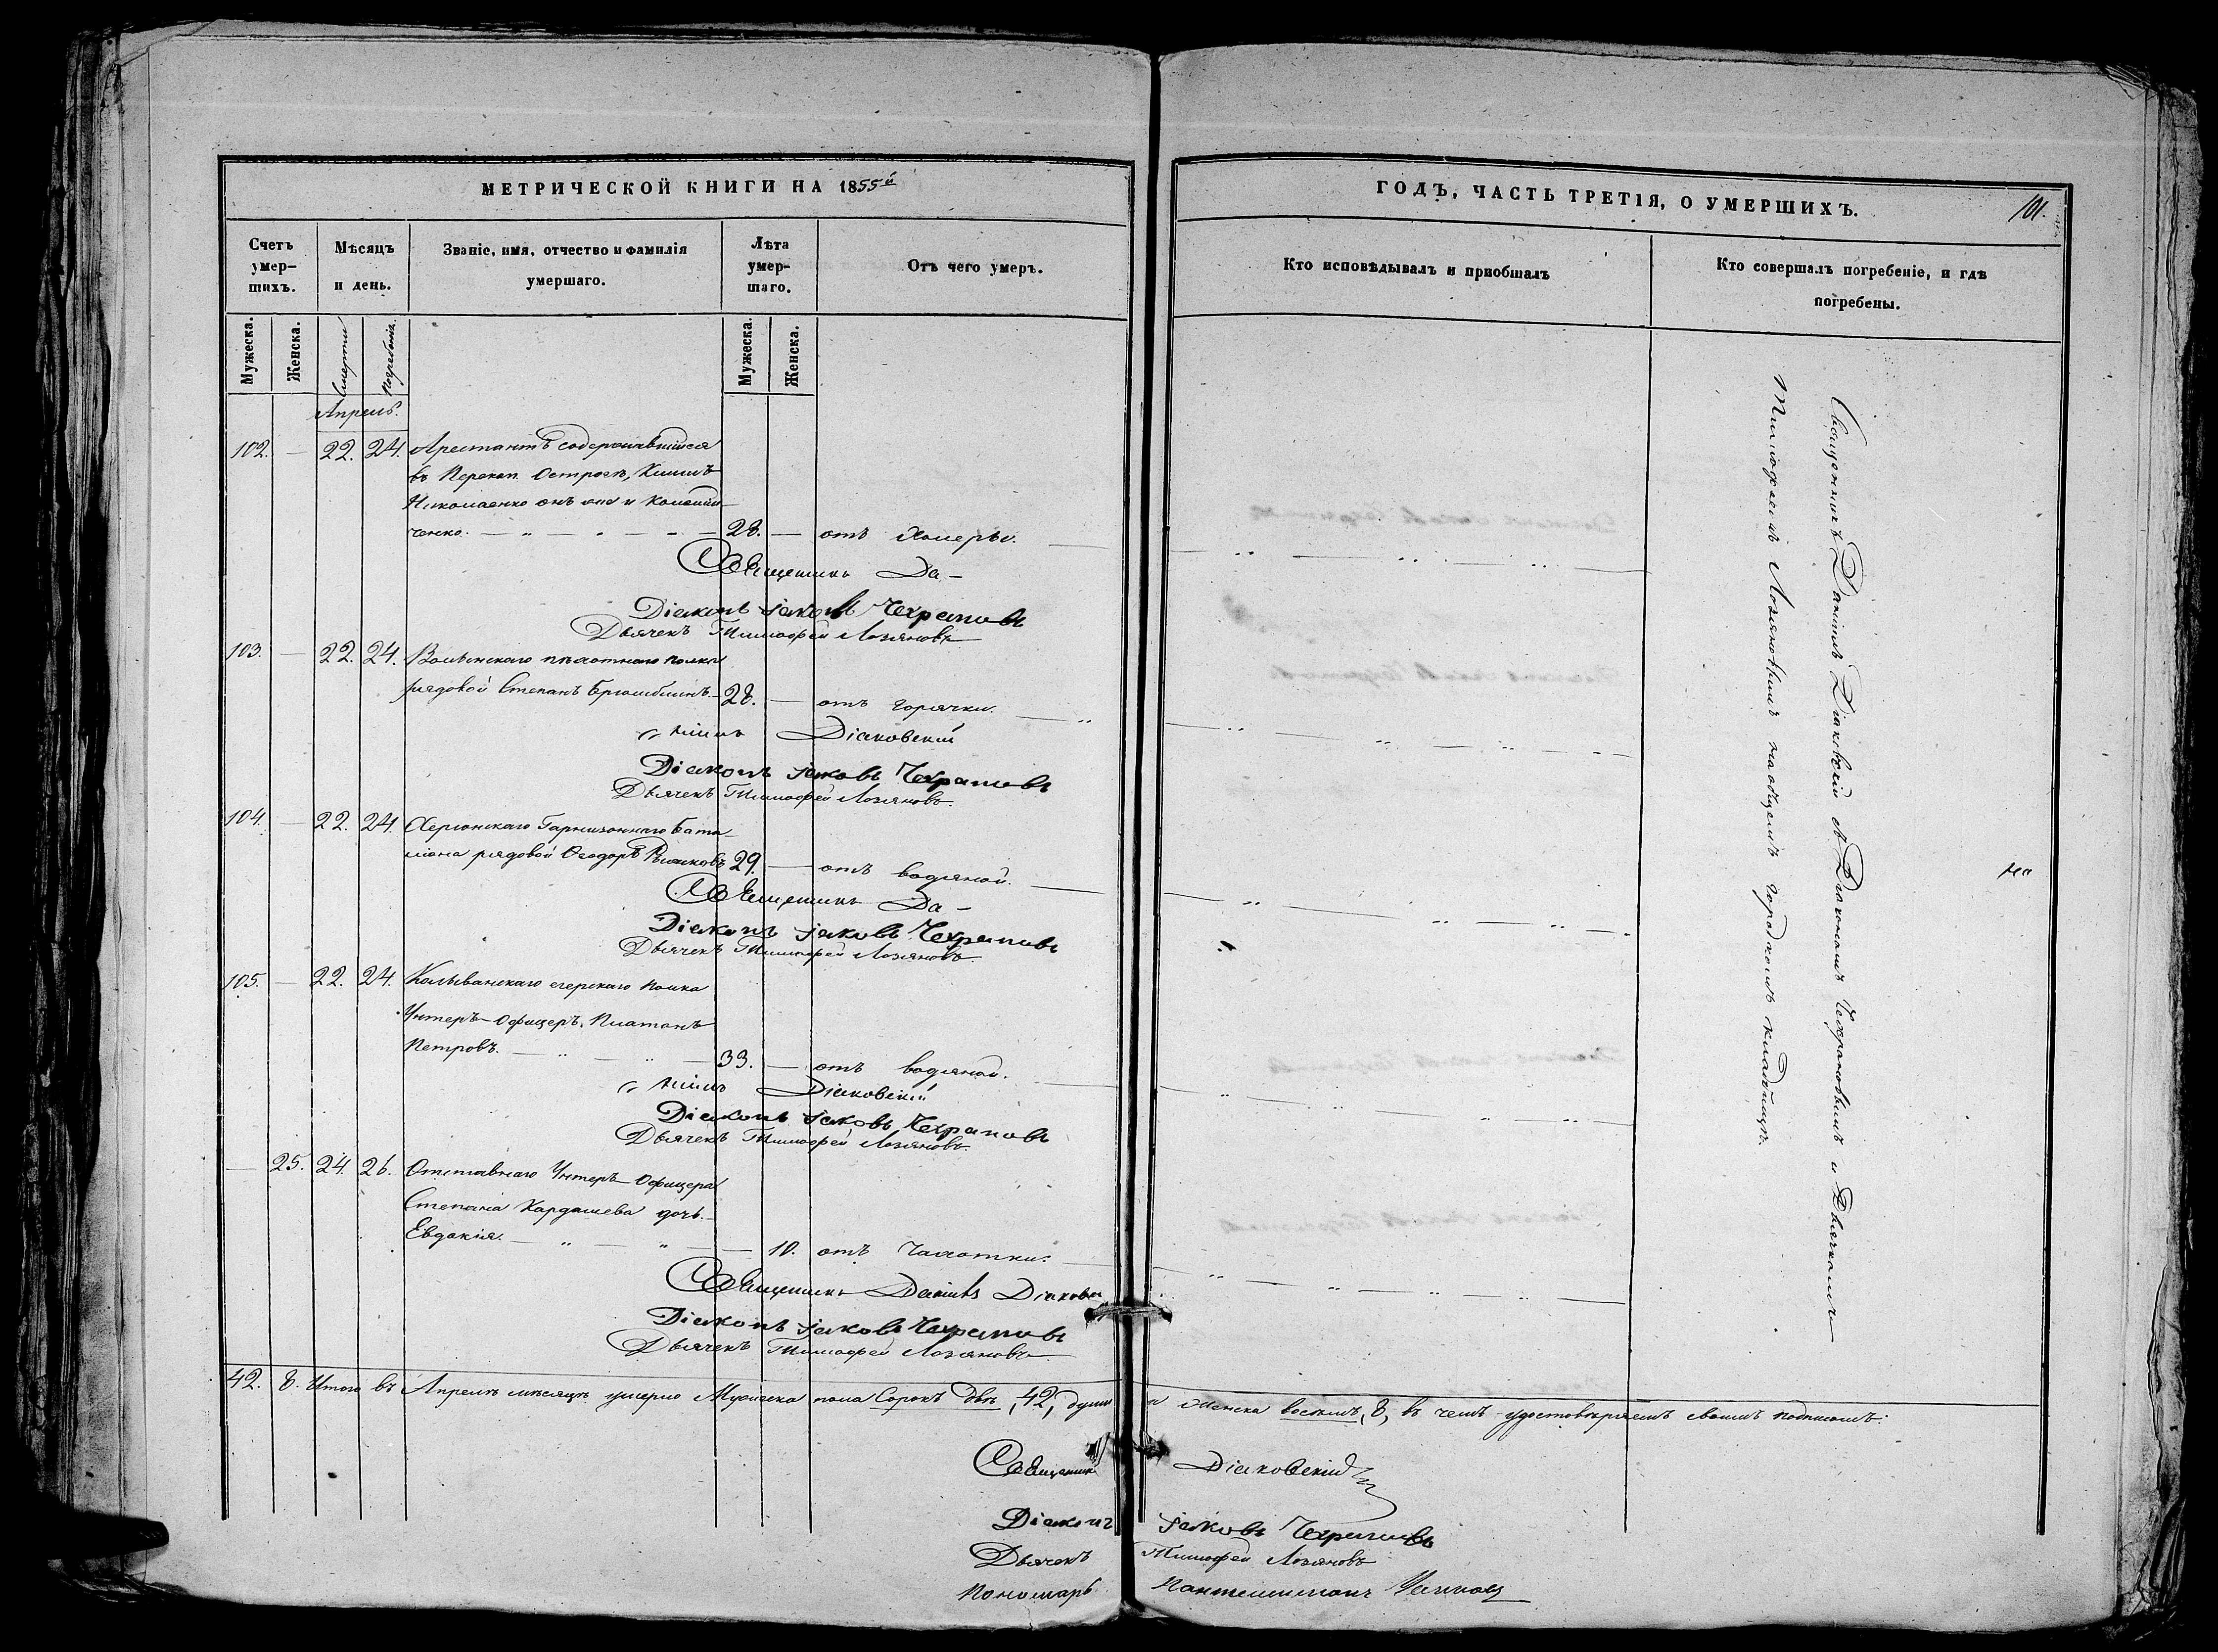 МЕТРИЧЕСКОЙ КНИГИ НА 1855й
ГОДЪ, ЧАСТЬ ТРЕТІЯ, О УМЕРШИХЪ.
101.
Счетъ умер-
шихъ.
Мѣсяцъ
и день.
Званіе, имя, отчество и фамилія
умершаго.
Лѣта
умер-
шаго.
Отъ чего умеръ.
Кто исповѣдывалъ и пріобщалъ
Кто совершалъ погребеніе, и гдѣ
погребены.
Мужеска. Женска. Смерти Погребенія. Мужеска. Женска.
Апрель.
102. — 22. 24. Арестантъ содержавшійся
въ Перекоп. Острогѣ,
Николаенко онъ же и
ченко. — 28. — отъ холеры.
Священникъ Да-
Діаконъ Іаковъ Чехрановъ
Дьячекъ Тимофей Лозяновъ
103. — 22. 24. Волынскаго пѣхотнаго полка
рядовой Степанъ — 28. — отъ горячки.
Діаковскій
Діаконъ Іаковъ Чехрановъ
Дьячекъ Тимофей Лозяновъ.
104. — 22. 24. Херсонскаго Гарнизоннаго Бата-
ліона рядовой Ѳеодоръ 29. — отъ водяной.
Священникъ Да-
Діаконъ Іаковъ Чехрановъ
Дьячекъ Тимофей Лозяновъ.
105. — 22. 24. Колыванскаго егерскаго полка
Унтеръ-Офицеръ, Платонъ
Петровъ. — 33. — отъ водяной.
Діаковскій
Діаконъ Іаковъ Чехрановъ
Дьячекъ Тимофей Лозяновъ.
— 25. 24. 26. Отставнаго Унтеръ-Офицера
Степана Кардашева дочь
Евдокія. — 10. отъ чахотки.
Священникъ Даніилъ Діаковск
Діаконъ Іаковъ Чехрановъ
Дьячекъ Тимофей Лозяновъ
Священникъ Даніилъ Діаковскій съ Діакономъ Чехрановымъ и Дьячкомъ
Тимофеемъ Лозяновымъ на общемъ городскомъ кладбищѣ.
на
42. 8. Итого въ Апрелѣ мѣсяцѣ умерло Мужеска пола Сорокъ двѣ, 42, души и женска восемь, 8, въ чемъ удостовѣряемъ своимъ подписомъ:
Священникъ Діаковскій
Діаконъ Іаковъ Чехрановъ
Дьячекъ Тимофей Лозяновъ
Пономарь Пантелеимонъ